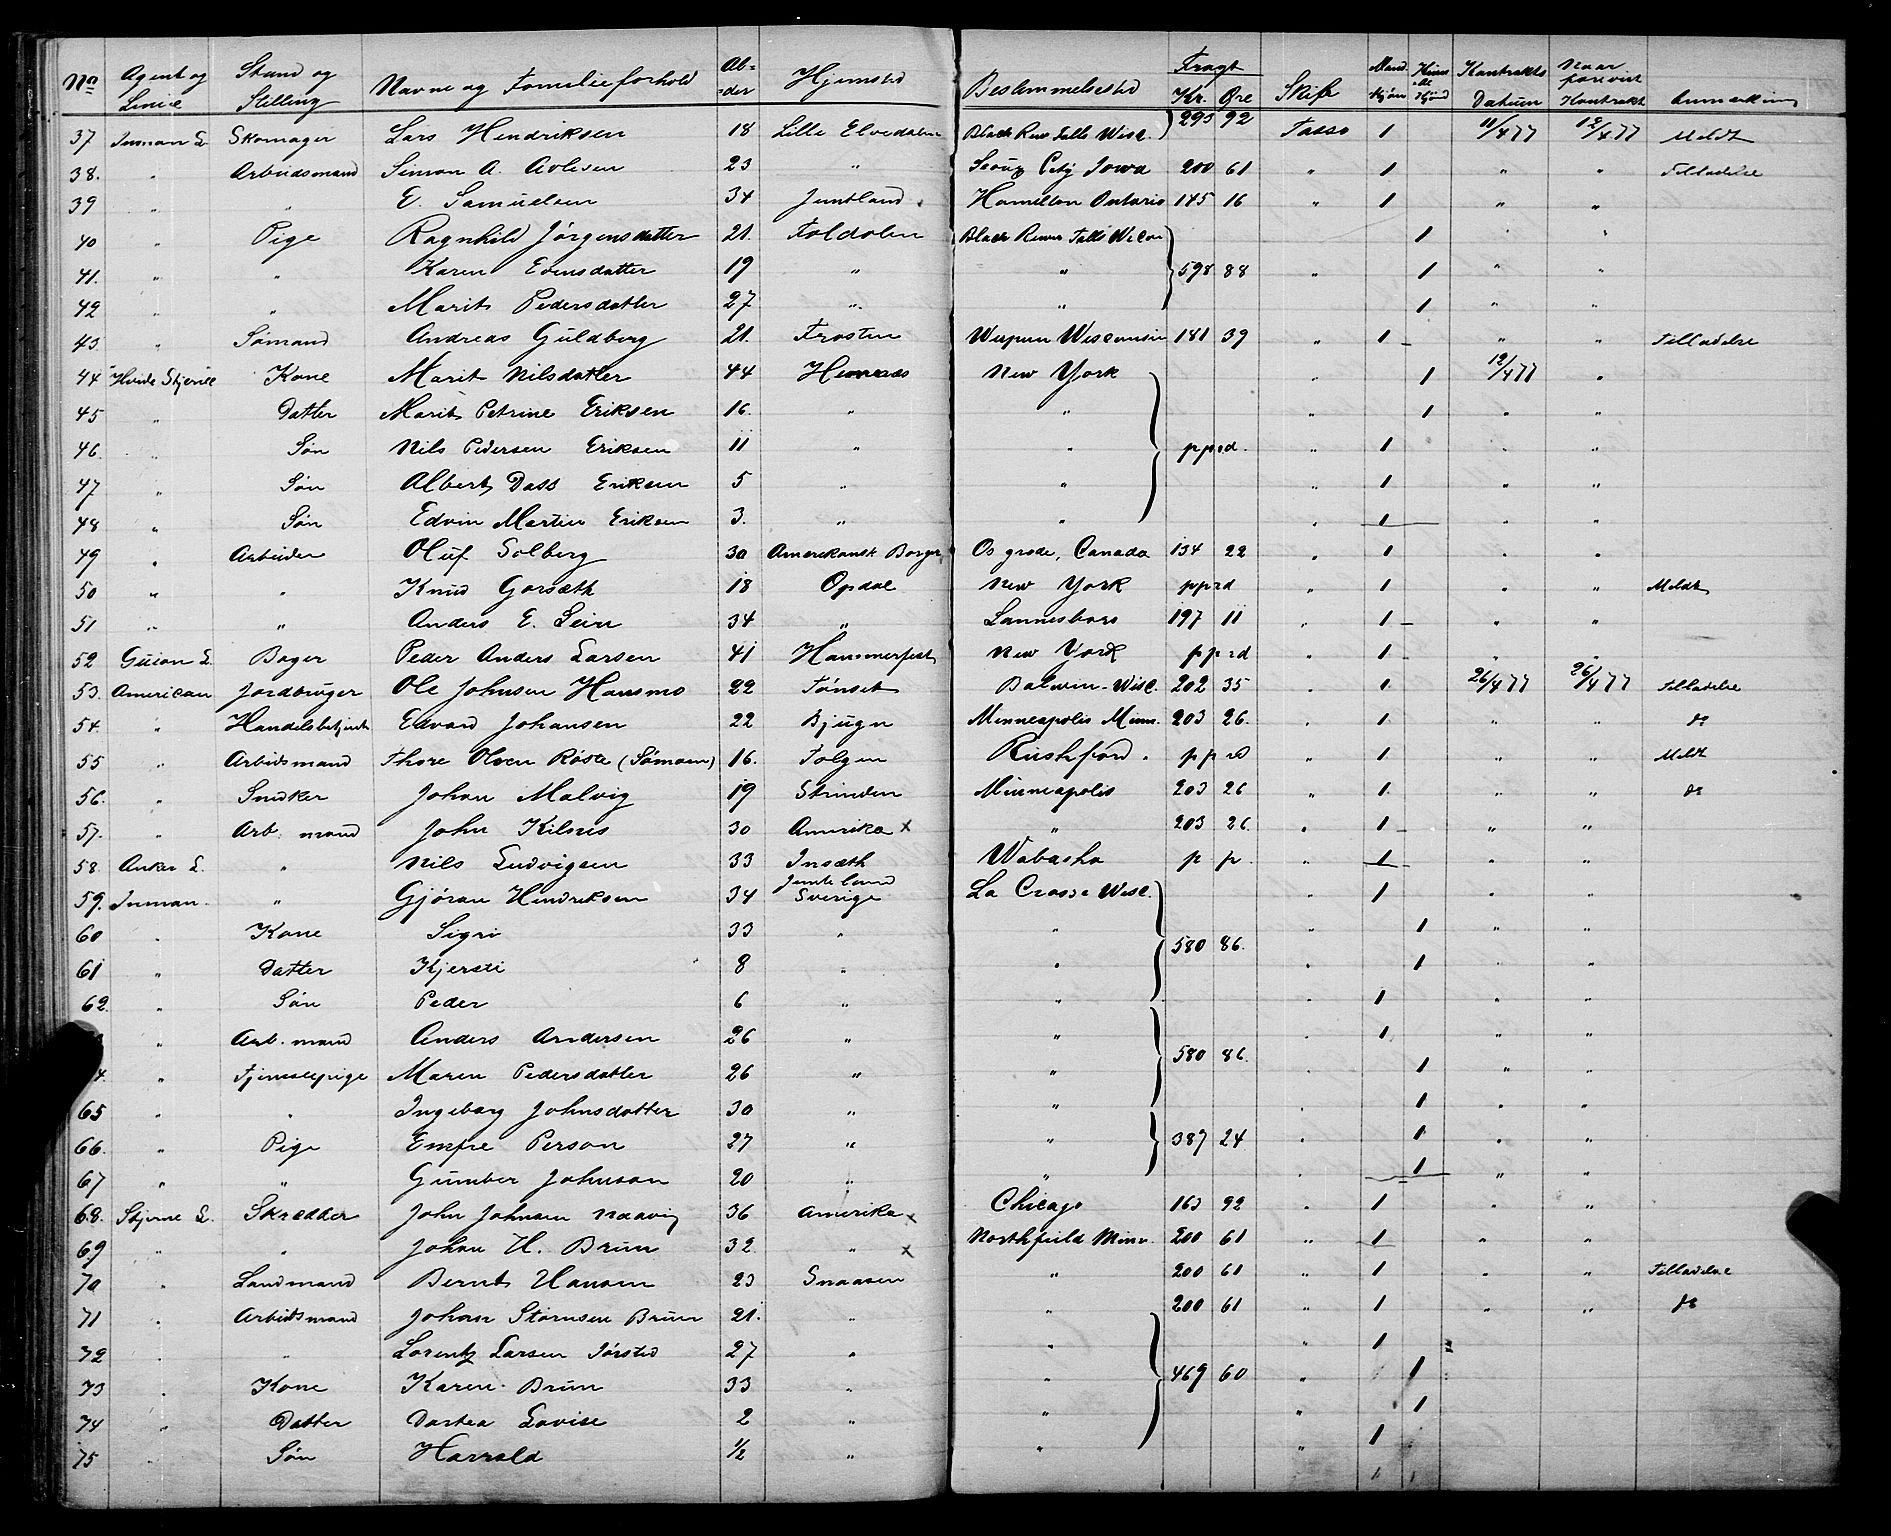 No Agent og Linie Stand og Stilling Navne og Familieforhold Al-der Hjemsted Bestemmelsested Fragt Kr. Øre Skib Mand kjøn Kontrakts Datum Naar forevist Kontrakt Anmærkning
37 Inman L. Skomager Lars Hendriksen 18 Lille Elvedalen Black River Falls Wisc. 295 92 Tasso 1 11/4 77 12/4 77 Meldt
38. " Arbeidsmand Simon A. Avlesen 23 " Scoux City Iowa 200 61 " 1 " " Tilladelse
39 " " E. Samuelsen 34 Jemtland Hamilton Ontario 145 16 " 1 " "
40 " Pige Ragnhild Jørgensdatter 21. Foldalen Black River Falls Wisc. 1 " "
41. " " Karen Evensdatter 19 " " 598 88 " 1 " "
42 " " Marit Pedersdatter 27 " " 1 " "
43 " Sømand Andreas Guldberg 21. Frosten Wisconsin 181 39 " 1 " " Tilladelse
44 Hvide Stjerne Kone Marit Nilsdatter 44 New York " 1 12/4 77 "
45 " Datter Marit Petrine Eriksen 16. " " " 1 " "
46. " Søn Nils Pedersen Eriksen 11 " " ppd. " 1 " "
47 " Søn Albert Dass Eriksen 5 " " " 1 " "
48 " Søn Edvin Martin Eriksen 3. " " " 1 " "
49 " Arbeider Oluf Solberg 30 Amerikansk Borger Os grode, Canada 134 22 " 1 " "
50 " " Knud Gorsæth 18 Opdal New York pprd " 1 " " Meldt
51 " " Anders E. Lein 34 " Lannesboro 197 11 " 1 " "
52 Guion L. Bager Peder Anders Larsen 41 Hammerfest New York pprd " 1 " "
53. American Jordbruger Ole Johnsen Hansmo 22 Tønset Balwin - Wisc. 202 35 " 1 26/4 77 26/4 77 Tilladelse
54. " Handelsbetjent Edvard Johansen 22 Bjugn Minneapolis Minn. 203 26. " 1 " " do
55 " Arbeidsmand Thore Olsen Røste (Sømoen) 16. Tolgen Rushford. pprd " 1 " " Meldt
56. " Snedker Johan Malvig 19 Strinden Minneapolis 203 26 " 1 " " do
57. " Arb. mand John Kilnes 30 Amerika x " 203 26. " 1 " "
58. Anker L. " Nils Ludvigsen 33 Insæth Wabasha p p. " 1 " "
59. Inman. " Gjøran Hendriksen 34 Jemteland Sverige La Crosse Wisc. 1 " "
60 " Kone Sigri 33 " " 580 86. " 1 " "
61 " Datter Kjersti 8 " " " 1 " "
62. " Søn Peder 6 " " " 1 " "
" Arb. mand Anders Andersen 26 " " 580 86. 1 " "
4. " Tjenestepige Maren Pedersdatter 26 " " 1 " "
65 " " Ingeborg Johnsdatter 30 " " " 1 " "
66. " Pige Person 27 " " 387 24 " 1 " "
67 " " Gunber Johnson 20 " " " 1 " "
68. Stjerne L. Skrædder John Johnsen Naavig 36 Amerika x Chicago 163 92 " 1 " "
69 " " Johan H. Brun 32. " x Northfield Minn. 200 61 " 1 " "
70 " Landmand Bernt Hansen 23 Snaasen " 200 61 " 1 " " Tilladelse
71 " Arbeidsmand Johan Størnsen Brun 21. " " 200 61 " 1 " " do
72 " " Lorentz Larsen Jørsted 27 " " " 1
73 " Kone Karen Brun 33 " " 469 60 " 1
74 " Datter Dortea Lovise 2 " " " 1
75 " Søn Harrald 1/2 " " " 1